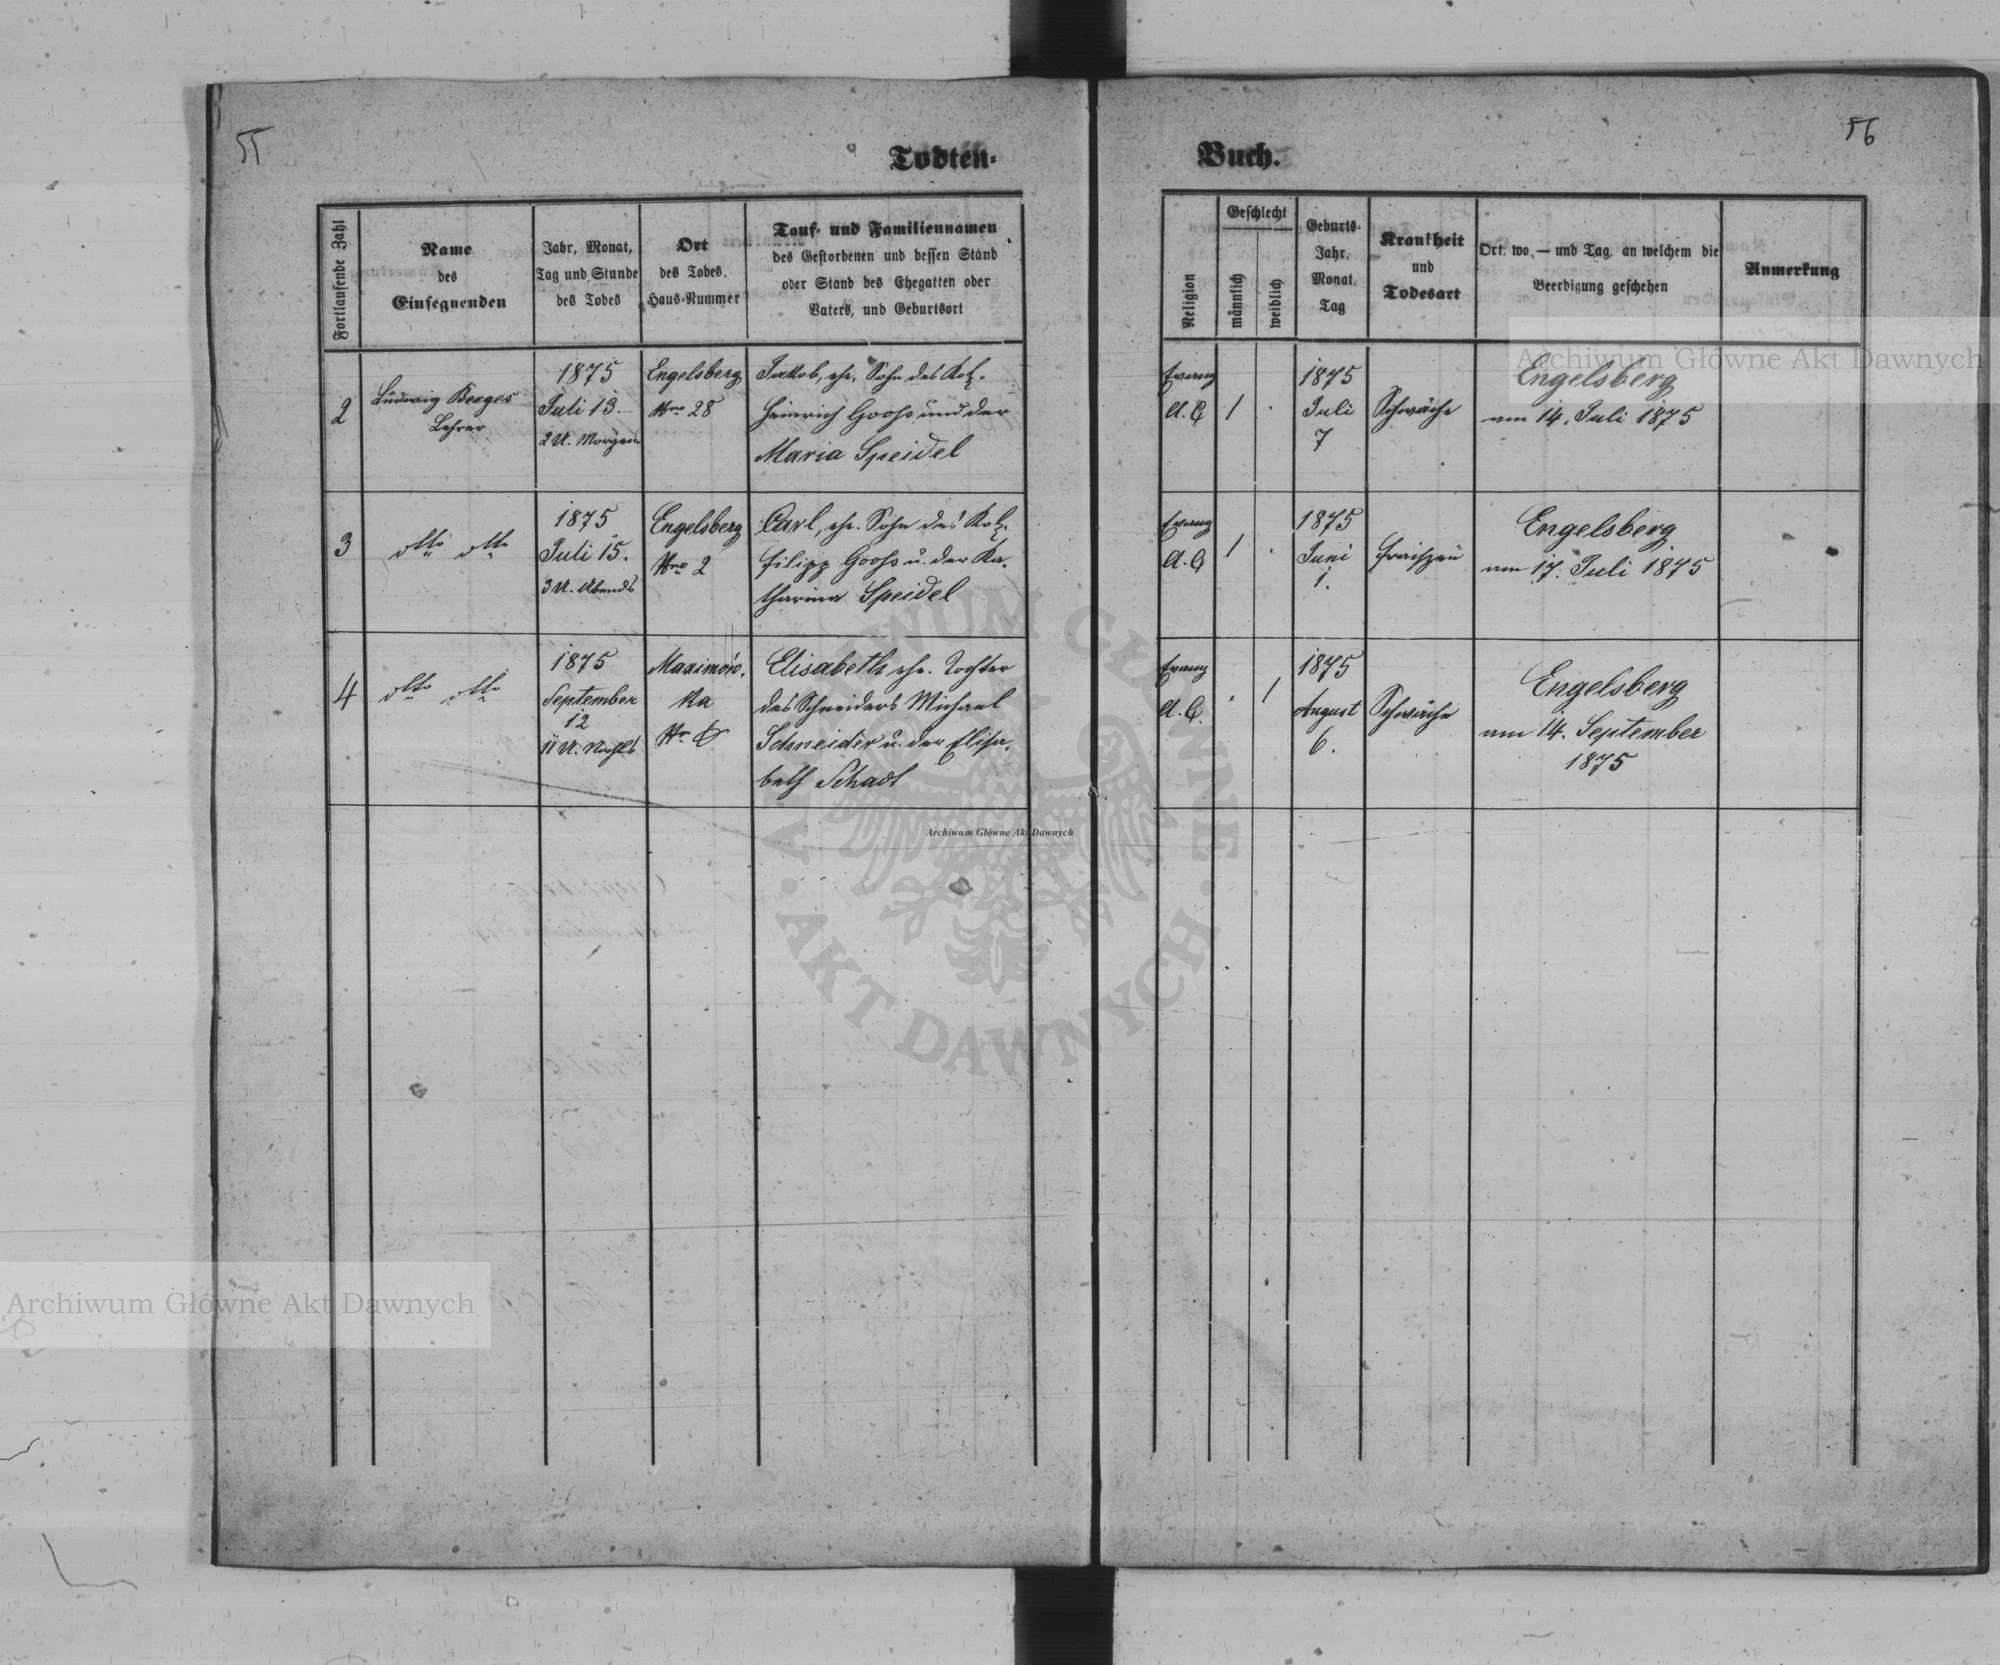 55
Todten-
Fortlaufende Zahl
Name
des
Einsegnenden
Jahr, Monat,
Tag und Stunde
des Todes
Ort
des Todes,
Haus-Nummer
Tauf- und Familiennamen
des Gestorbenen und dessen Stand
oder Stand des Ehegatten oder
Vaters, und Geburtsort
2
Ludwig Berges
Lehrer
1875
Juli 13.
2 U. Morgen
Engelsberg
Nro 28
Jakob, eh. Sohn des Kol.
Heinrich Gooss und der
Maria Speidel
3
dtto dtto
1875
Juli 15.
3 U. Abends
Engelsberg
Nro 2
Carl, eh. Sohn des Kol.
Filipp Gooss u. der Ka-
tharina Speidel
4
dtto dtto
1875
September
12
11 U. Nachts
Maximow-
ka
Nr. 6
Elisabeth eh. Tochter
des Schneiders Michael
Schneider u. der Elisa-
beth Schadt
56
Buch.
Religion
Geschlecht
männlich
weiblich
Geburts-
Jahr,
Monat,
Tag
Krankheit
und
Todesart
Ort, wo, — und Tag, an welchem die
Beerdigung geschehen
Anmerkung
Evang
A. C
1
1875
Juli
7
Schwäche
Engelsberg
am 14. Juli 1875
Evang
A. C
1
1875
Juni
1.
Fraiszen
Engelsberg
am 17. Juli 1875
Evang
A. C.
1
1875
August
6.
Schwäche
Engelsberg
am 14. September
1875
Archiwum Główne Akt Dawnych
Archiwum Główne Akt Dawnych
Archiwum Główne Akt Dawnych
AKT DAWNYCH